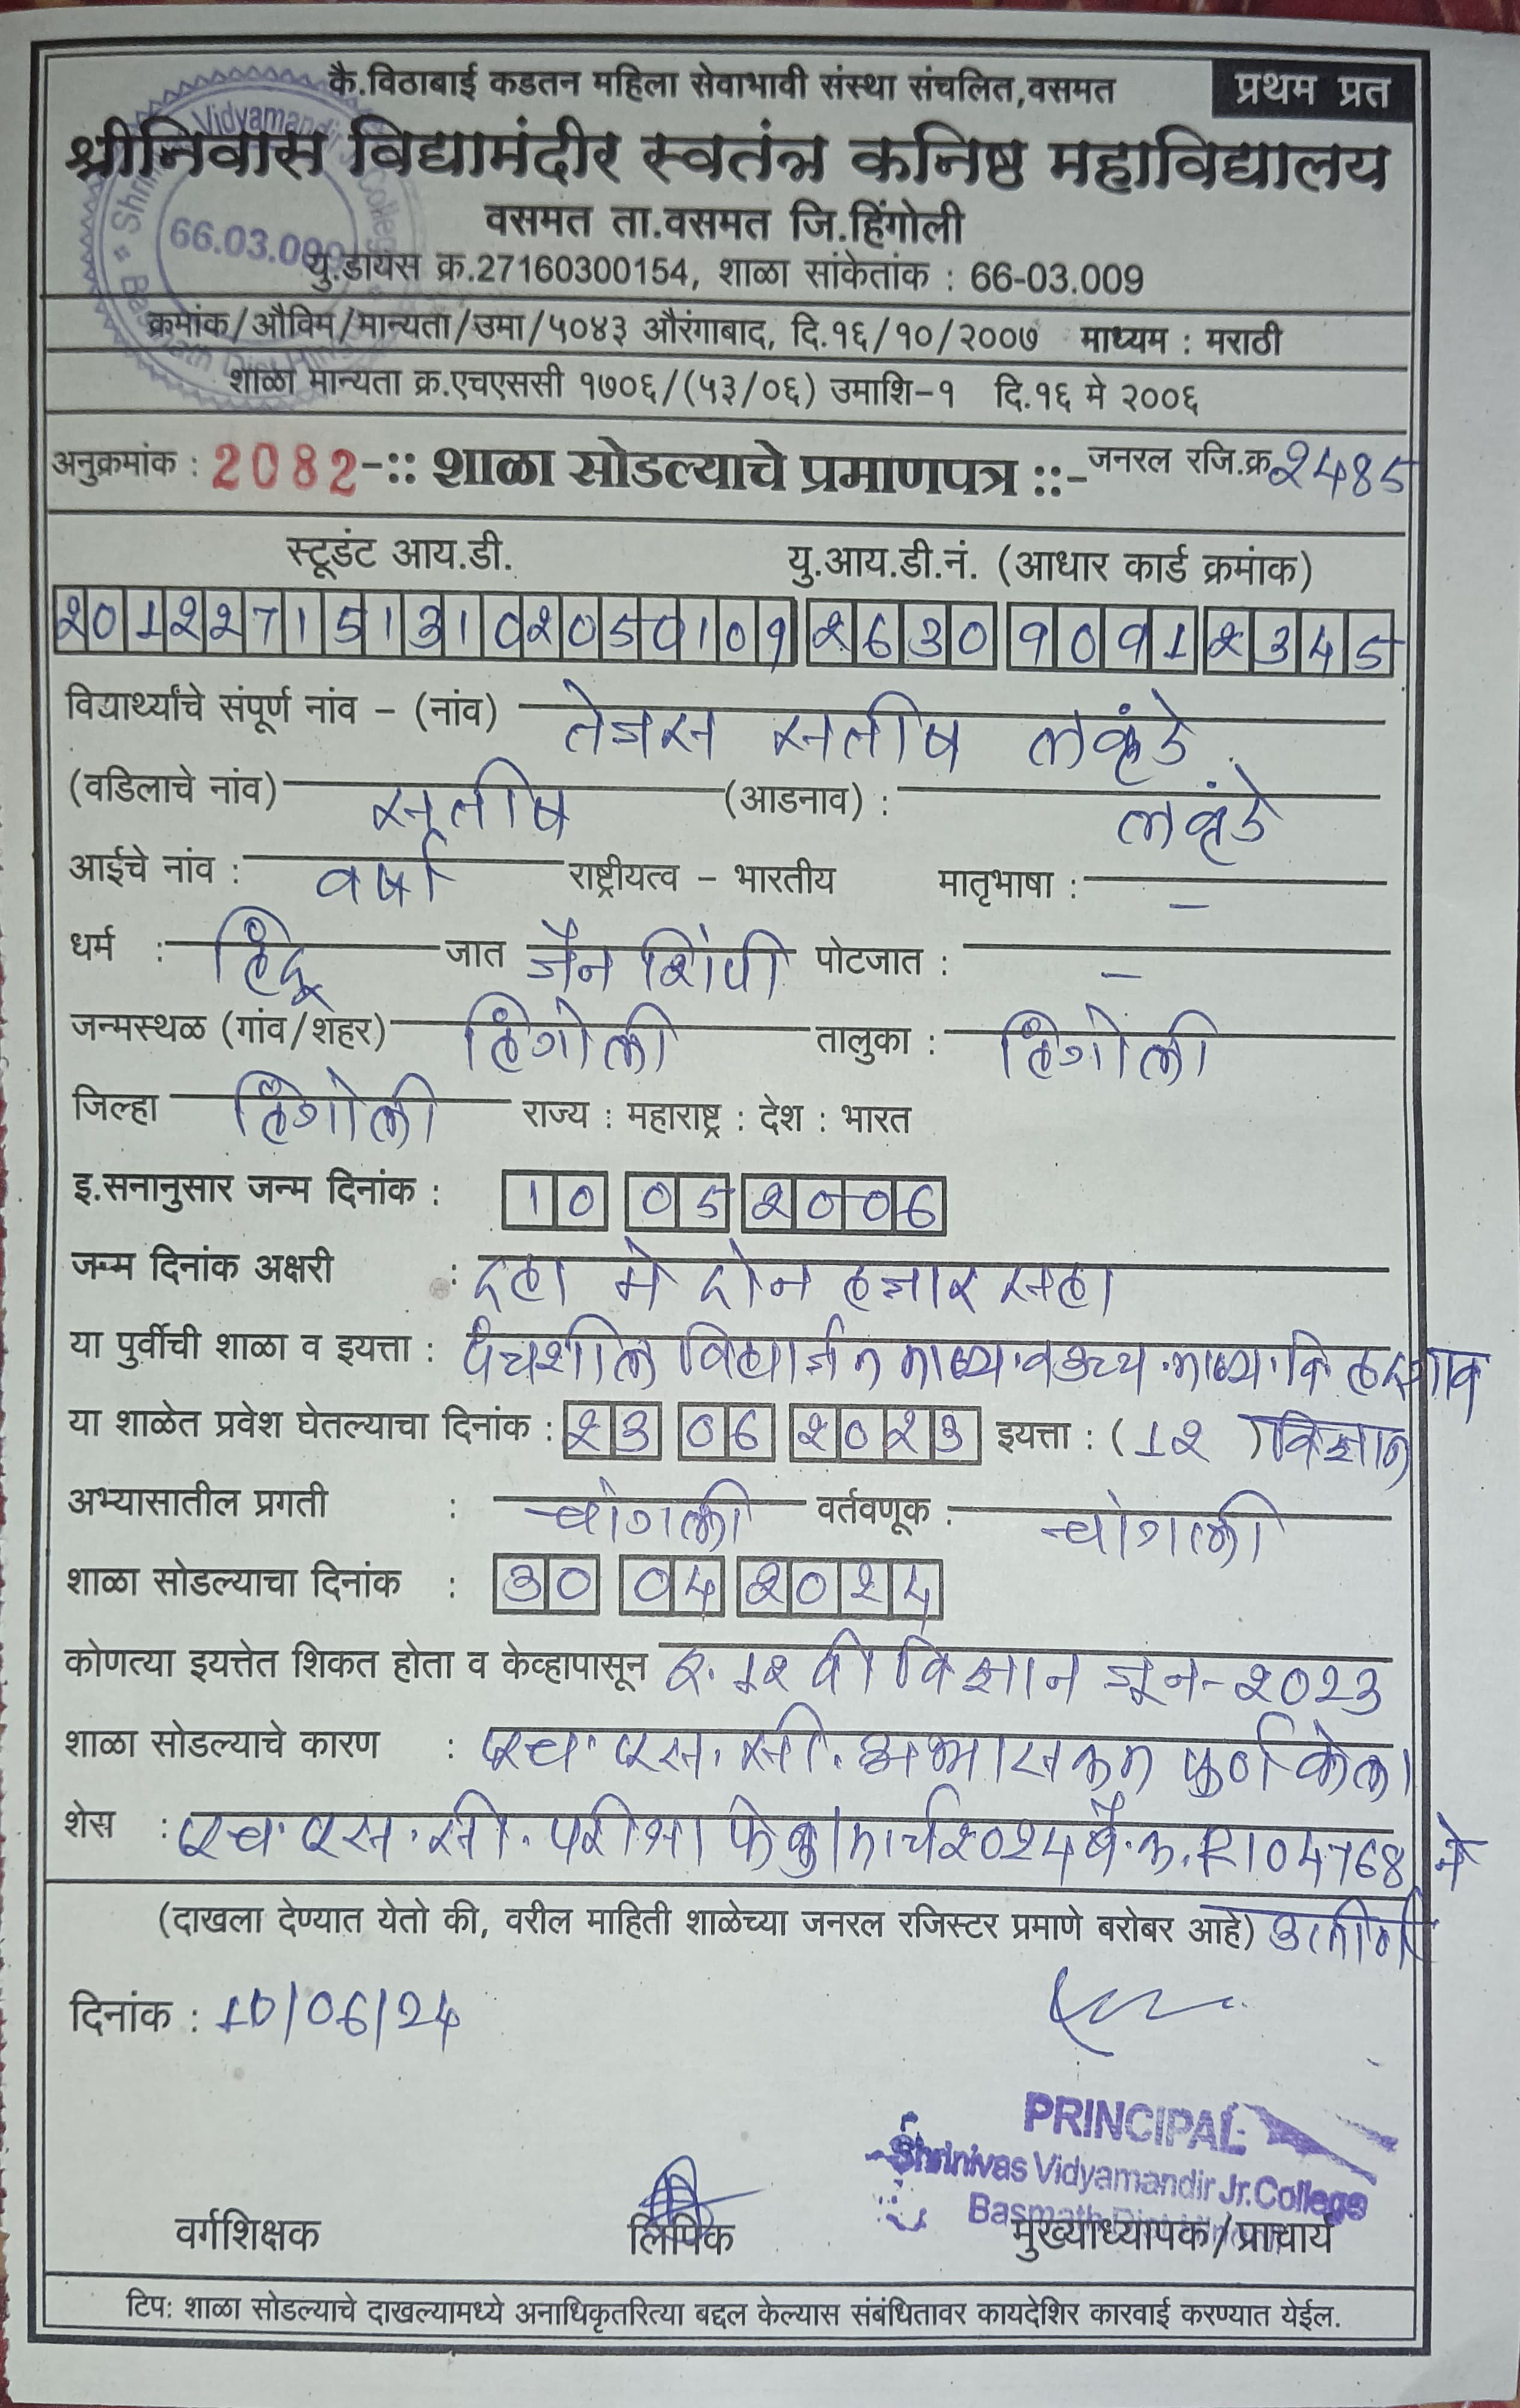 कै.विठाबाई कडतन महिला सेवाभावी संस्था संचलित,वसमत प्रथम प्रत
श्रीनिवास विद्यामंदीर स्वतंत्र कनिष्ठ महाविद्यालय
वसमत ता.वसमत जि.हिंगोली
66.03.009
यु.डायस क्र.27160300154, शाळा सांकेतांक : 66-03.009
क्रमांक/औविम/मान्यता/उमा/५०४३ औरंगाबाद, दि.१६/१०/२००७ माध्यम : मराठी
शाळा मान्यता क्र.एचएससी १७०६/(५३/०६) उमाशि-१ दि.१६ मे २००६
अनुक्रमांक : 2082 -:: शाळा सोडल्याचे प्रमाणपत्र ::- जनरल रजि.क्र 2485
स्टूडंट आय.डी. यु.आय.डी.नं. (आधार कार्ड क्रमांक)
2012271513102050109 2630 9091 2345
विद्यार्थ्यांचे संपूर्ण नांव – (नांव) तेजस सतीष लकुंडे
(वडिलाचे नांव) सतीष (आडनाव) : लकुंडे
आईचे नांव : वर्षा राष्ट्रीयत्व – भारतीय मातृभाषा : –
धर्म : हिंदू जात जैन शिंपी पोटजात : –
जन्मस्थळ (गांव/शहर) हिंगोली तालुका : हिंगोली
जिल्हा हिंगोली राज्य : महाराष्ट्र : देश : भारत
इ.सनानुसार जन्म दिनांक : 10 05 2006
जन्म दिनांक अक्षरी : दहा मे दोन हजार सहा
या पुर्वीची शाळा व इयत्ता : पंचशील विद्यार्जन माध्य.व उच्च.माध्य.वि
या शाळेत प्रवेश घेतल्याचा दिनांक : 23 06 2023 इयत्ता : (12 ) विज्ञान
अभ्यासातील प्रगती : चांगली वर्तवणूक : चांगली
शाळा सोडल्याचा दिनांक : 30 04 2024
कोणत्या इयत्तेत शिकत होता व केव्हापासून इ. 12 वी विज्ञान जून-2023
शाळा सोडल्याचे कारण : एच. एस. सी. अभ्यासक्रम पुर्ण केला
शेस : एच. एस. सी. परीक्षा फेब्रु/मार्च 2024 बै.क्र. R104768 ने
(दाखला देण्यात येतो की, वरील माहिती शाळेच्या जनरल रजिस्टर प्रमाणे बरोबर आहे) उत्तीर्ण
दिनांक : 10/06/24
PRINCIPAL
Shrinivas Vidyamandir Jr.College
वर्गशिक्षक लिपिक मुख्याध्यापक/प्राचार्य
टिप: शाळा सोडल्याचे दाखल्यामध्ये अनाधिकृतरित्या बद्दल केल्यास संबंधितावर कायदेशिर कारवाई करण्यात येईल.